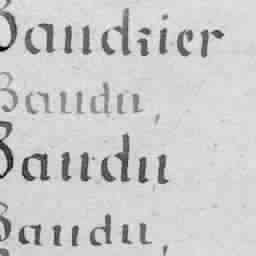 Baudrier
Baudu,
Baudu
Baudu,